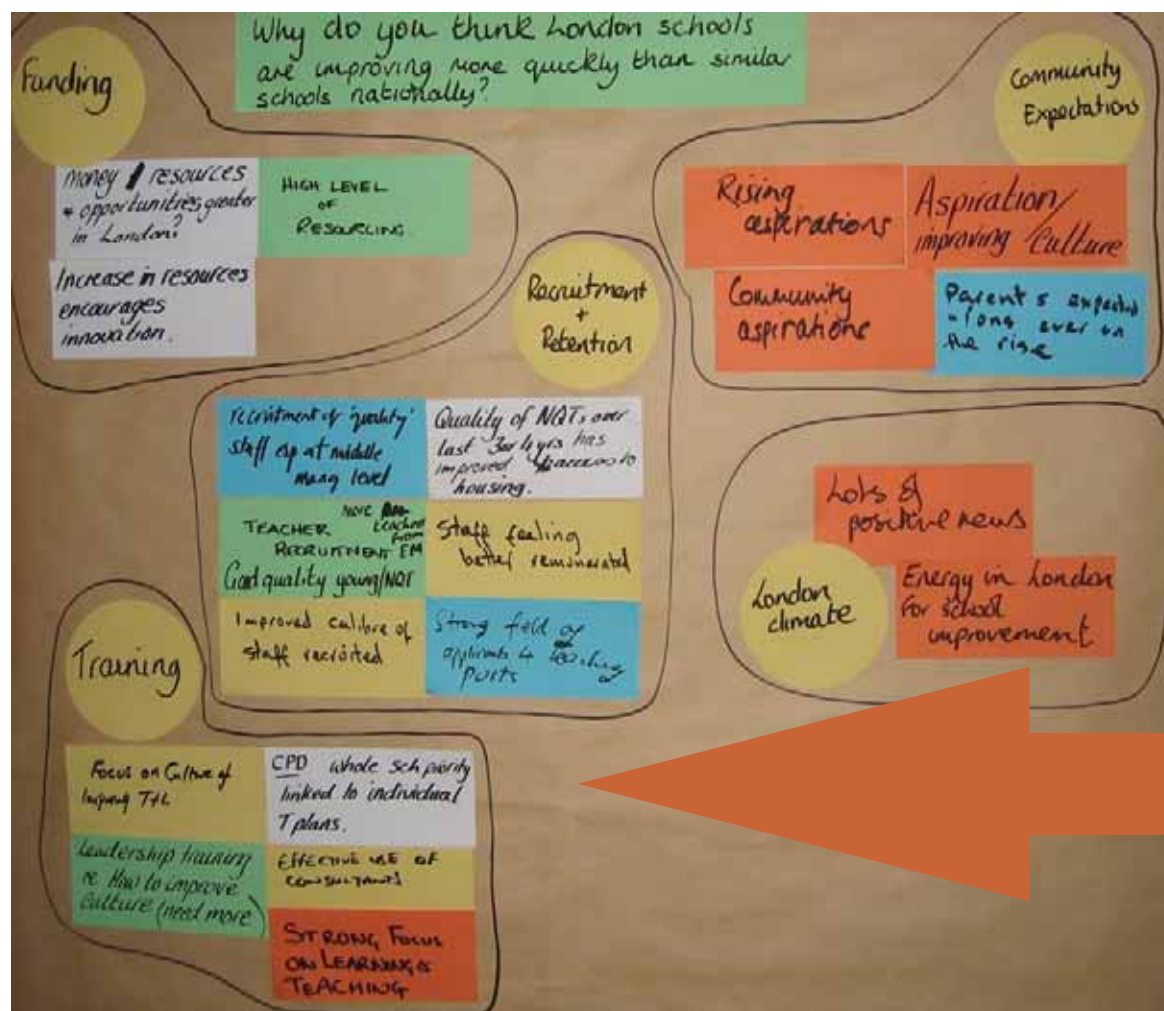 Why do you think London schools
are improving more quickly than similar
schools nationally?
Funding
Money / resources
+ opportunities greater
in London?
HIGH LEVEL
OF
RESOURCING
Increase in resources
encourages
innovation.
Community
Expectations
Rising
aspirations
Aspiration/
improving / culture
Community
aspirations
Parent s
ever on
the rise
Recruitment
+
Retention
recruitment of 'quality'
staff esp at middle
mang level
Quality of NQTs over
last 3or4yrs has
improved access to
housing.
TEACHER
RECRUITMENT EM
Good quality young/NQT
more
teachers
from
Staff feeling
better remunerated
Improved calibre of
staff recruited
Strong field of
applicants 4 teaching
posts
London
climate
Lots of
positive news
Energy in London
for school
improvement
Training
Focus on Culture of
Improving T+L
CPD whole sch priority
linked to individual
T plans.
Leadership training
re How to improve
culture (need more)
EFFECTIVE USE OF
CONSULTANTS
STRONG FOCUS
ON LEARNING &
TEACHING